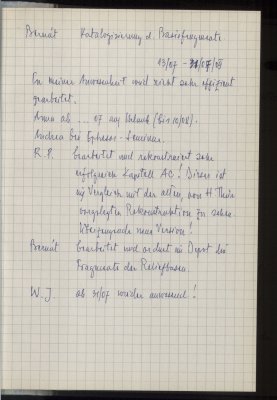 Bernát Katalogisierung d. Basisfragmente
13/07 - 31/07/09
In meiner Anwesenheit wird nicht sehr effizient
gearbeitet.
Anna ab ... 07 auf Urlaub (bis 10/08).
Andrea bis Ephesos-Seminar.
R. P. bearbeitet und rekonstruiert sehr
erfolgreich Kapitell AC! Dieses ist
im Vergleich mit der alten, von H. Thür
vorgelegten Rekonstruktion zu sehen.
Überzeugende neue Version!
Bernát bearbeitet und ordnet im Depot die
Fragmente der Reliefbasen.
W. J. ab 31/07 wieder anwesend!